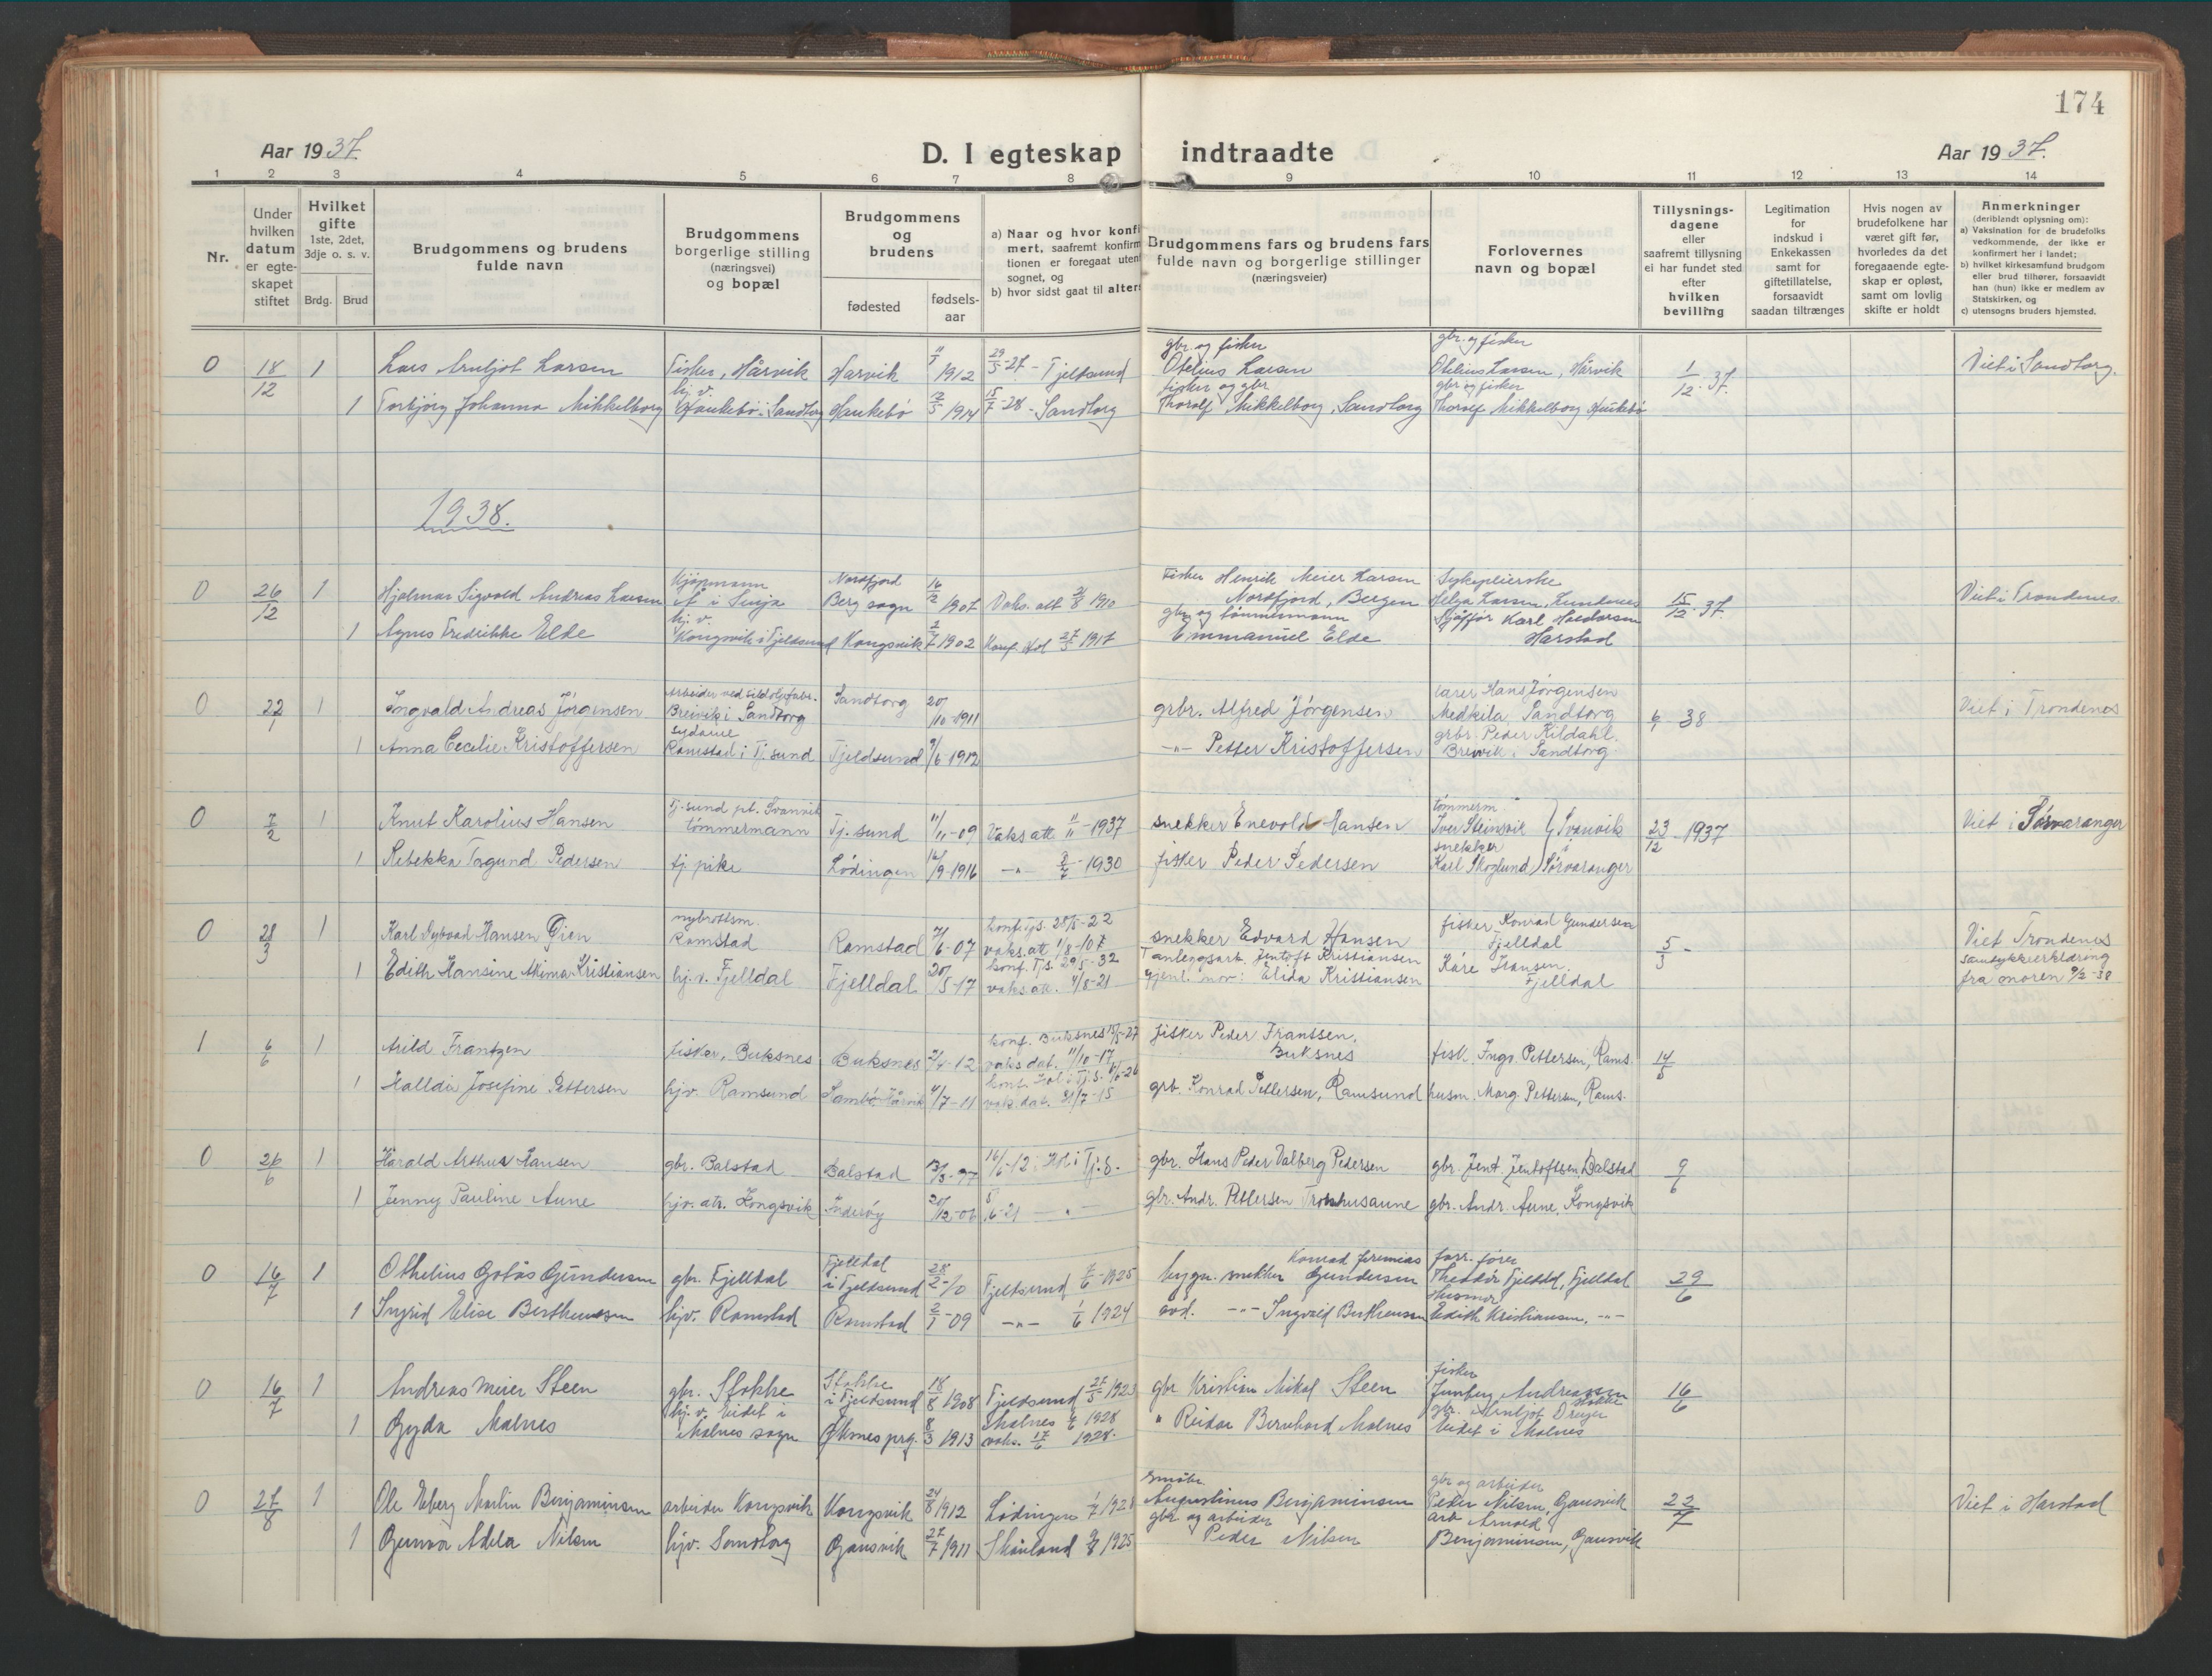 174
Aar 1937.
D. I egteskap indtraadte
Aar 1937.
1 2 3 4 5 6 7 8 9 10 11 12 13 14
Nr.
Under hvilken datum er egteskapet stiftet
Hvilket gifte 1ste, 2det, 3dje o. s. v.
Brdg. Brud
Brudgommens og brudens fulde navn
Brudgommens borgerlige stilling (næringsvei) og bopæl
Brudgommens og brudens
fødested
fødsels-aar
a) Naar og hvor konfi
mert, saafremt konfirm
tionen er foregaat uten
sognet, og
b) hvor sidst gaat til alter
Brudgommens fars og brudens fars
fulde navn og borgerlige stillinger
(næringsveier)
Forlovernes
navn og bopæl
Tillysnings-
dagene
eller
saafremt tillysning
ei har fundet sted
efter
hvilken
bevilling
Legitimation
for
indskud i
Enkekassen
samt for
giftetillatelse,
forsaavidt
saadan tiltrænges
Hvis nogen av
brudefolkene har
været gift før,
hvorledes da det
foregaaende egte-
skap er opløst,
samt om lovlig
skifte er holdt
Anmerkninger
(deriblandt oplysning om):
a) Vaksination for de brudefolks
vedkommende, der ikke er
konfirmert her i landet;
b) hvilket kirkesamfund brudgom
eller brud tilhører, forsaavidt
han (hun) ikke er medlem av
Statskirken, og
c) utensogns bruders hjemsted.
0 18/12 1 Lars Arnljot Larsen Fisker, Hårvik Harvik 1912 29/5-27 - Tjeldsund gbr. og fisker Otelius Larsen gbr. og fisker Otelius Larsen, Hårvik 1/12-37. Viet i Sandtorg.
1 Torbjørg Johanna Mikkelborg hj.v. Haukebø i Sandtorg Haukebø 1914 -28 - Sandtorg fisker og gbr. Thoralf Mikkelborg, Sandtorg gbr og fisker Thoralf Mikkelborg Haukebø
1938.
0 26/12 1 Hjalmar Sigvald Andreas Larsen Kjøpmann Å i Senja Nordfjord Berg sogn 16/2 1907 Vaks. att 8 1910 Fisker Henrik Meier Larsen Nordfjord, Bergen Sykepleierske Helga Larsen, 15/12-37. Viet i Trondenes.
1 Agnes Fredrikke Elde hj.v. Kongsvik i Tjeldsund Kongsvik 2/7 1902 Konf. Hol 27/5 1917 gbr. og tømmermann Emmanuel Elde Sjåffør Karl Harstad
0 22/1 1 Ingvald Andreas Jørgensen Arbeider ved sildoljefabr. Breivik i Sandtorg Sandtorg 20/10-1911 grbr. Alfred Jørgensen lærer Hans Jørgensen Medkila, Sandtorg 6/1 38 Viet i Trondenes
1 Anna Cecilie Kristoffersen Sydame Ramstad i Tj.sund Tjeldsund 9/6-1912 -"- Petter Kristoffersen grbr. Peder Kildahl Breivik i Sandtorg
0 7/2 1 Knut Karolius Hansen Tj.sund pt. Svanvik tømmermann Tj.sund 11/11-09 Vaks att. 11/11-1937 snekker Enevold Hansen tømmerm. Iver Steinsvik Svanvik 23/12-1937 Viet i Sørvaranger
1 Rebekka Dagund Pedersen tj.pike Lødingen 16/9-1916 -"- 3/6-1930 fisker Peder Pedersen snekker Karl Skoglund i Sørvaranger
0 28/3 1 Karl Dybvad Hansen Gien nybrottsm. Ramstad Ramstad /6-07 konf. Tjs. 28/5-22 vaks.att. 1/8-07 snekker Edvard Hansen fisker Konrad Gundersen Fjelldal 5/3- Viet Trondenes
1 Edith Hansine Akima Kristiansen hj.v. Fjelldal Fjelldal 20/5-17 konf. Tjs. 29/5-32 vaks.att. 4/8-21 anleggsarb. Jentoft Kristiansen Gjenl. mor: Elida Kristiansen Kåre Fransen Fjelldal samtykkeerklæring fra moren 9/2-38
1 6/6 1 Arild Frantzen fisker, Buksnes Buksnes 2/4-12 konf. Buksnes 15/5-27 vaks dat. 11/10-17 fisker Peder Franssen, Buksnes fisk. Ingv. Pettersen, Rams. 14/5
1 Halldis Josefine Pettersen hjv. Ramsund Sambø Hårvik 4/7-11 konf. Hol i Tj.s. 6/6-26 vaks.dat. 31/7-15 grb. Konrad Pettersen, Ramsund husm. Marg. Pettersen, Rams.
0 26/6 1 Harald Arthur Hansen gbr. Balstad Balstad 13/3-97 16/6-12: Hol i Tj.s. gbr. Hans Peder Valberg Pedersen gbr. Jent. Jentoftsen, Balstad 9/6
1 Jenny Pauline Aune hjv. atr. Kongsvik Inderøy 20/12-06 5/6-21 -"- gbr. Andr. Pettersen Tronhusaune gbr. Andr. Aune, Kongsvik
0 16/7 1 Othelius Gotås Gundersen gbr. Fjelldal Fjelldal i Tjeldsund 28/2-10 Tjeldsund 7/6-1925 bygn. snekker Konrad Jeremias Gundersen forr.fører Theodor Fjelldal, Fjelldal 29/6
1 Ingrid Elise Bertheussen hjv. Ramstad Ramstad 2/1-09 -"- 1/6 1924 avd. -"- Ingvald Bertheussen Husmor Edith Kristiansen, -"-
0 16/7 1 Andreas Meier Steen gbr. Stokke Stokke i Tjeldsund 18/8 1908 Tjeldsund 27/5 1923 gbr Kristian Nikal Steen fisker Jenberg Andreassen Stokke 16/6
1 Gyda Malnes hj.v. Eidet i Malnes sogn Øksnes prg. 8/3 1913 Malnes 1928 vaks. 17/6 1928. " Reidar Bernhard Malnes gbr. Arnljot Dreyer Eidet i Malnes
0 27/8 1 Ole Eberg Marlin Benjaminsen arbeider Kongsvik Kongsvik 24/8 1912 Lødingen 1/7 1928 småbr. Augustinus Benjaminsen gbr og arbeider Peder Nilsen, Gausvik 22/7 Viet i Harstad
1 Gunvor Adela Nilsen hjv. Sandtorg Gausvik 27/7 1911 Skånland 9/8 1925 gbr og arbeider Peder Nilsen arb Arnold Benjaminsen, Gausvik